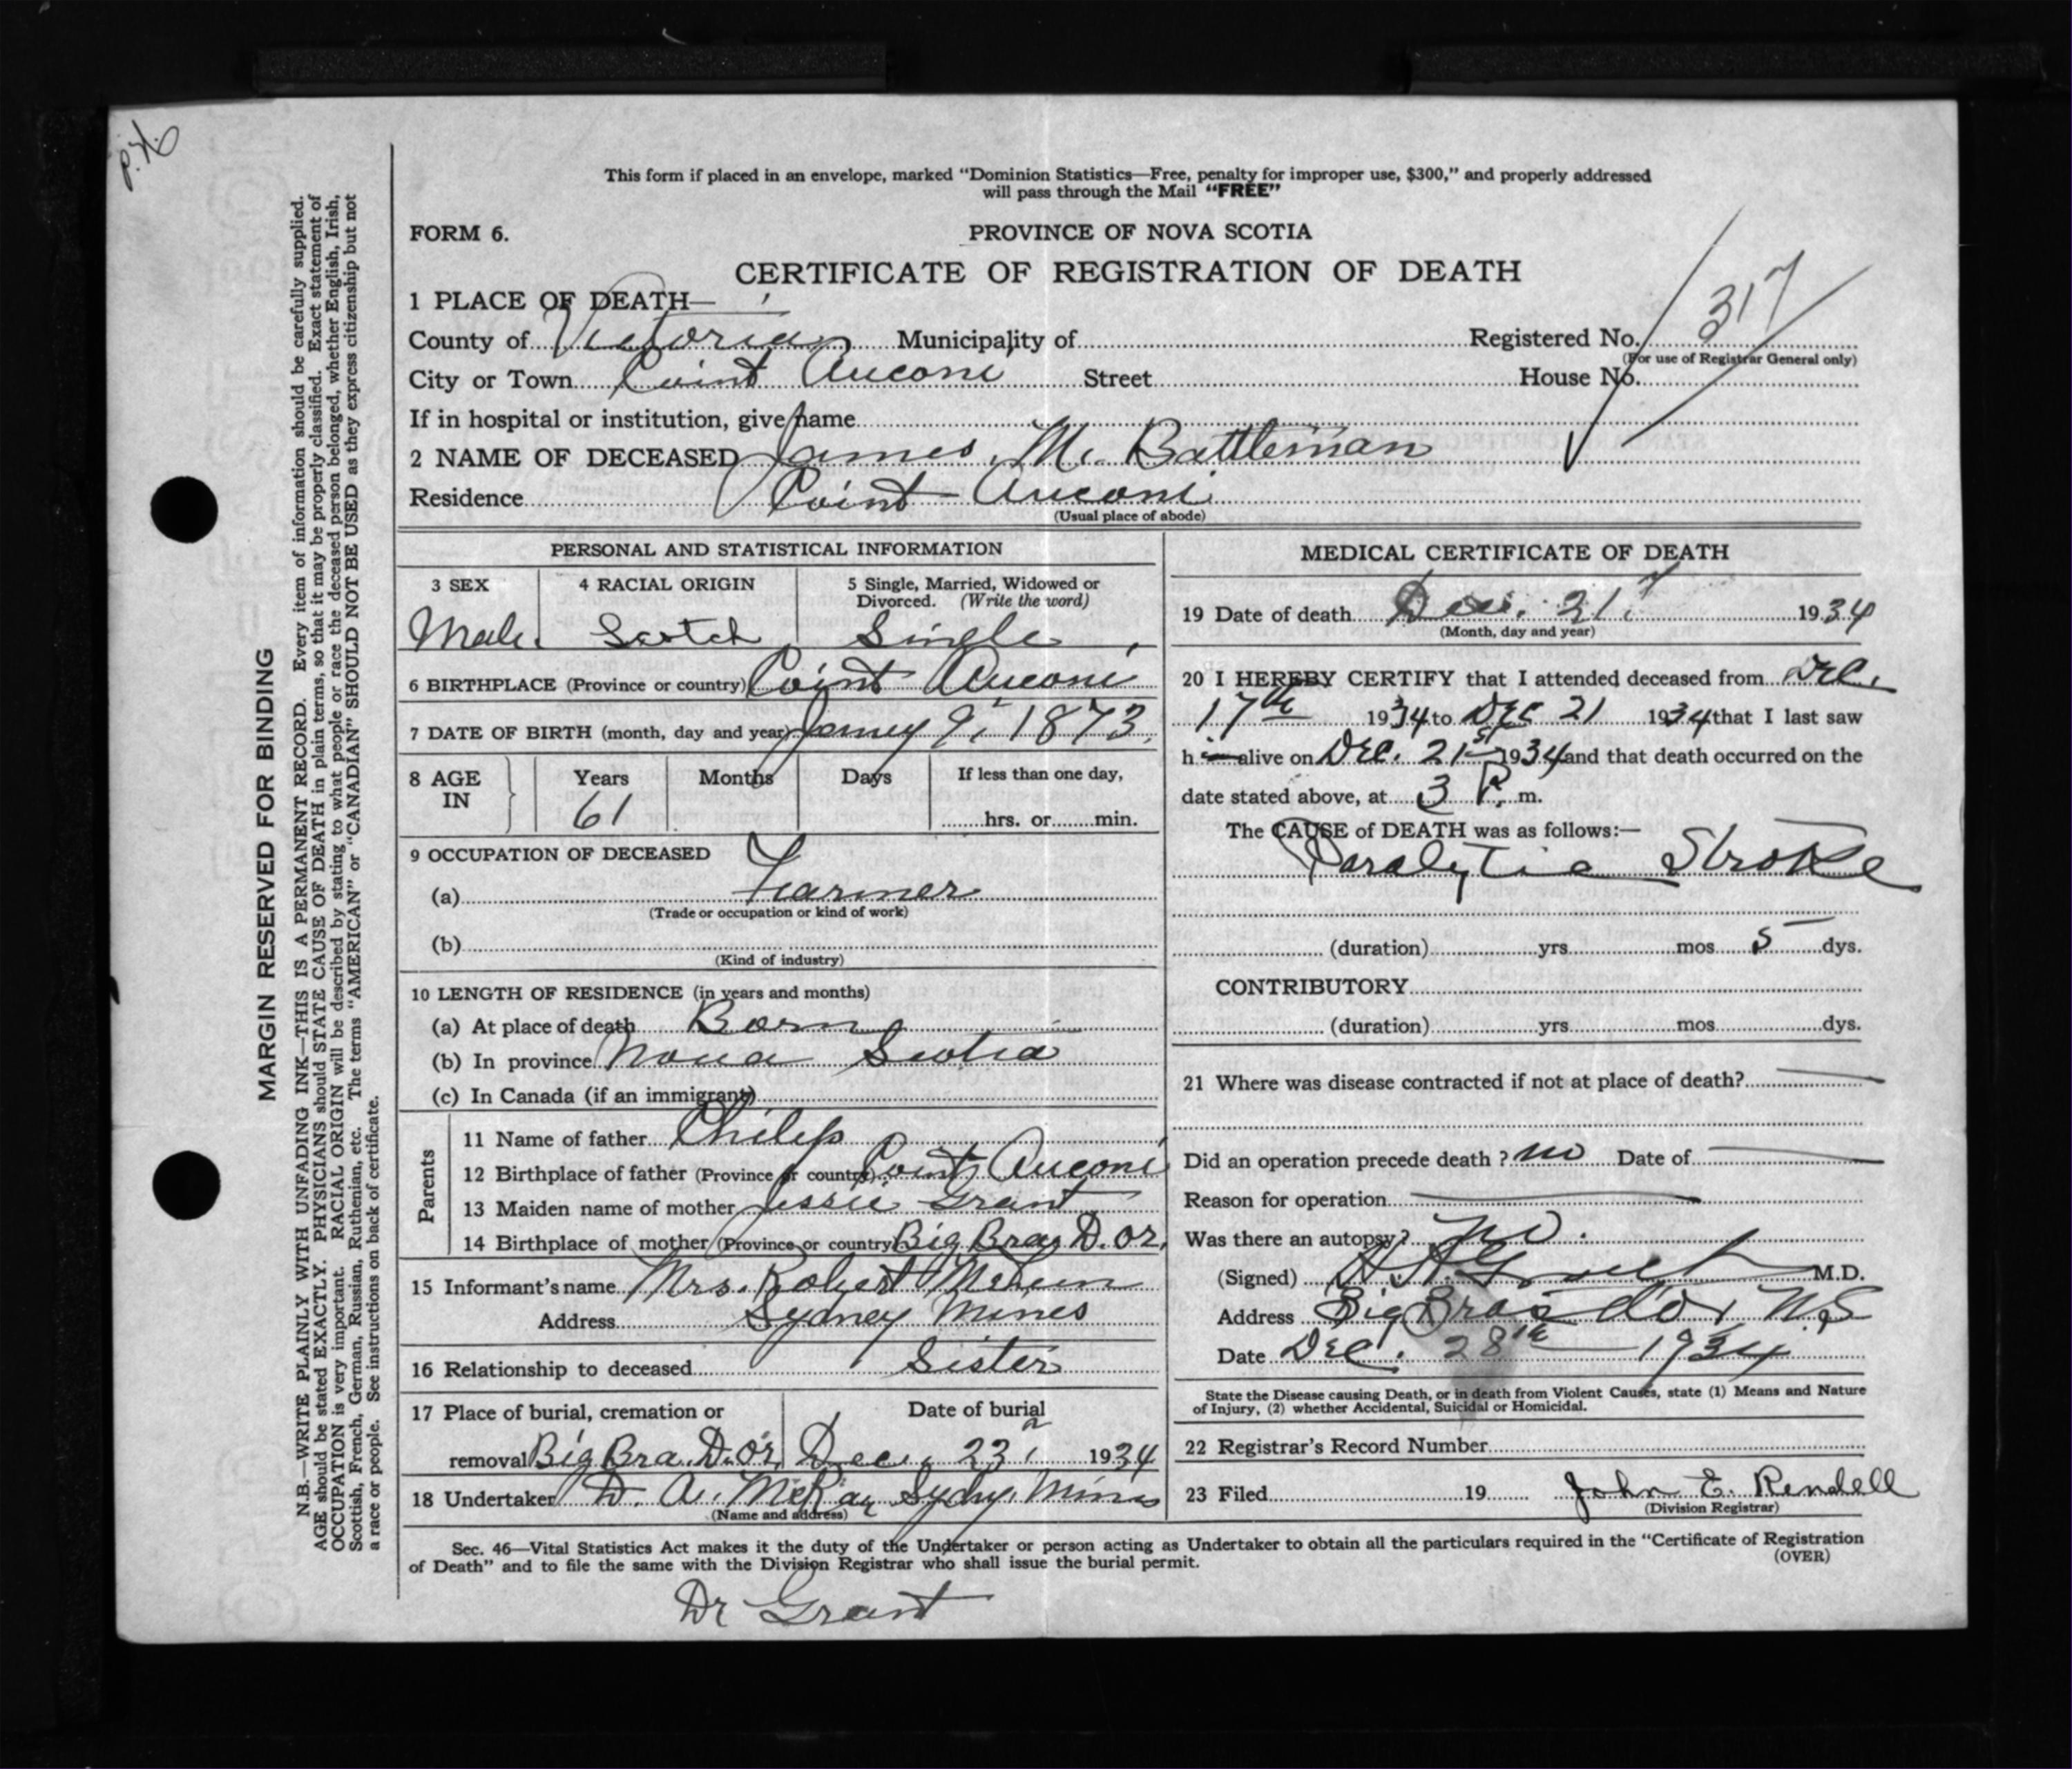 P.H.
This form if placed in an envelope, marked "Dominion Statistics—Free, penalty for improper use, $300," and properly addressed
will pass through the Mail "FREE"
FORM 6.
PROVINCE OF NOVA SCOTIA
CERTIFICATE OF REGISTRATION OF DEATH
1 PLACE OF DEATH—
County of Victoria Municipality of Registered No. 317
(For use of Registrar General only)
City or Town Point Auconi Street House No.
If in hospital or institution, give name
2 NAME OF DECEASED James M. Battleman
Residence Point Auconi
(Usual place of abode)
PERSONAL AND STATISTICAL INFORMATION
3 SEX 4 RACIAL ORIGIN 5 Single, Married, Widowed or
Divorced. (Write the word)
Male. Scotch Single
6 BIRTHPLACE (Province or country) Point Auconi
7 DATE OF BIRTH (month, day and year) 9, 1873.
8 AGE IN Years Months Days If less than one day,
61 hrs. or min.
9 OCCUPATION OF DECEASED
(a) Farmer
(Trade or occupation or kind of work)
(b)
(Kind of industry)
10 LENGTH OF RESIDENCE (in years and months)
(a) At place of death Born
(b) In province Nova Scotia
(c) In Canada (if an immigrant)
Parents
11 Name of father Philip
12 Birthplace of father (Province or country) Point Auconi
13 Maiden name of mother Jessie Grant
14 Birthplace of mother (Province or country) Big Bras D.or.
15 Informant's name Mrs. Robert
Address Sydney Mines
16 Relationship to deceased Sister
17 Place of burial, cremation or Date of burial
removal Big Bra. D.or. Dec. 23 1934
18 Undertaker D. A. McRay Sydny. Mines
(Name and address)
MEDICAL CERTIFICATE OF DEATH
19 Date of death Dec. 21. 1934
(Month, day and year)
20 I HEREBY CERTIFY that I attended deceased from DEC.
17th 1934 to DEC 21 1934 that I last saw
h alive on DEC. 21st 1934 and that death occurred on the
date stated above, at 3 P. m.
The CAUSE of DEATH was as follows:—
Paralytic Stroke
(duration) yrs mos 5 dys.
CONTRIBUTORY
(duration) yrs mos dys.
21 Where was disease contracted if not at place of death? —
Did an operation precede death? no Date of —
Reason for operation —
Was there an autopsy? no.
(Signed) H Grant M.D.
Address Big Bras d'or N.S
Date DEC. 28th 1934
State the Disease causing Death, or in death from Violent Causes, state (1) Means and Nature
of Injury, (2) whether Accidental, Suicidal or Homicidal.
22 Registrar's Record Number
23 Filed 19 John E. Rendell
(Division Registrar)
Sec. 46—Vital Statistics Act makes it the duty of the Undertaker or person acting as Undertaker to obtain all the particulars required in the "Certificate of Registration
of Death" and to file the same with the Division Registrar who shall issue the burial permit.
(OVER)
Dr Grant
MARGIN RESERVED FOR BINDING
N.B.—WRITE PLAINLY WITH UNFADING INK—THIS IS A PERMANENT RECORD. Every item of information should be carefully supplied.
AGE should be stated EXACTLY. PHYSICIANS should STATE CAUSE OF DEATH in plain terms, so that it may be properly classified. Exact statement of
OCCUPATION is very important. RACIAL ORIGIN will be described by stating to what people or race the deceased person belonged, whether English, Irish,
Scottish, French, German, Russian, Ruthenian, etc. The terms "AMERICAN" or "CANADIAN" SHOULD NOT BE USED as they express citizenship but not
a race or people. See instructions on back of certificate.